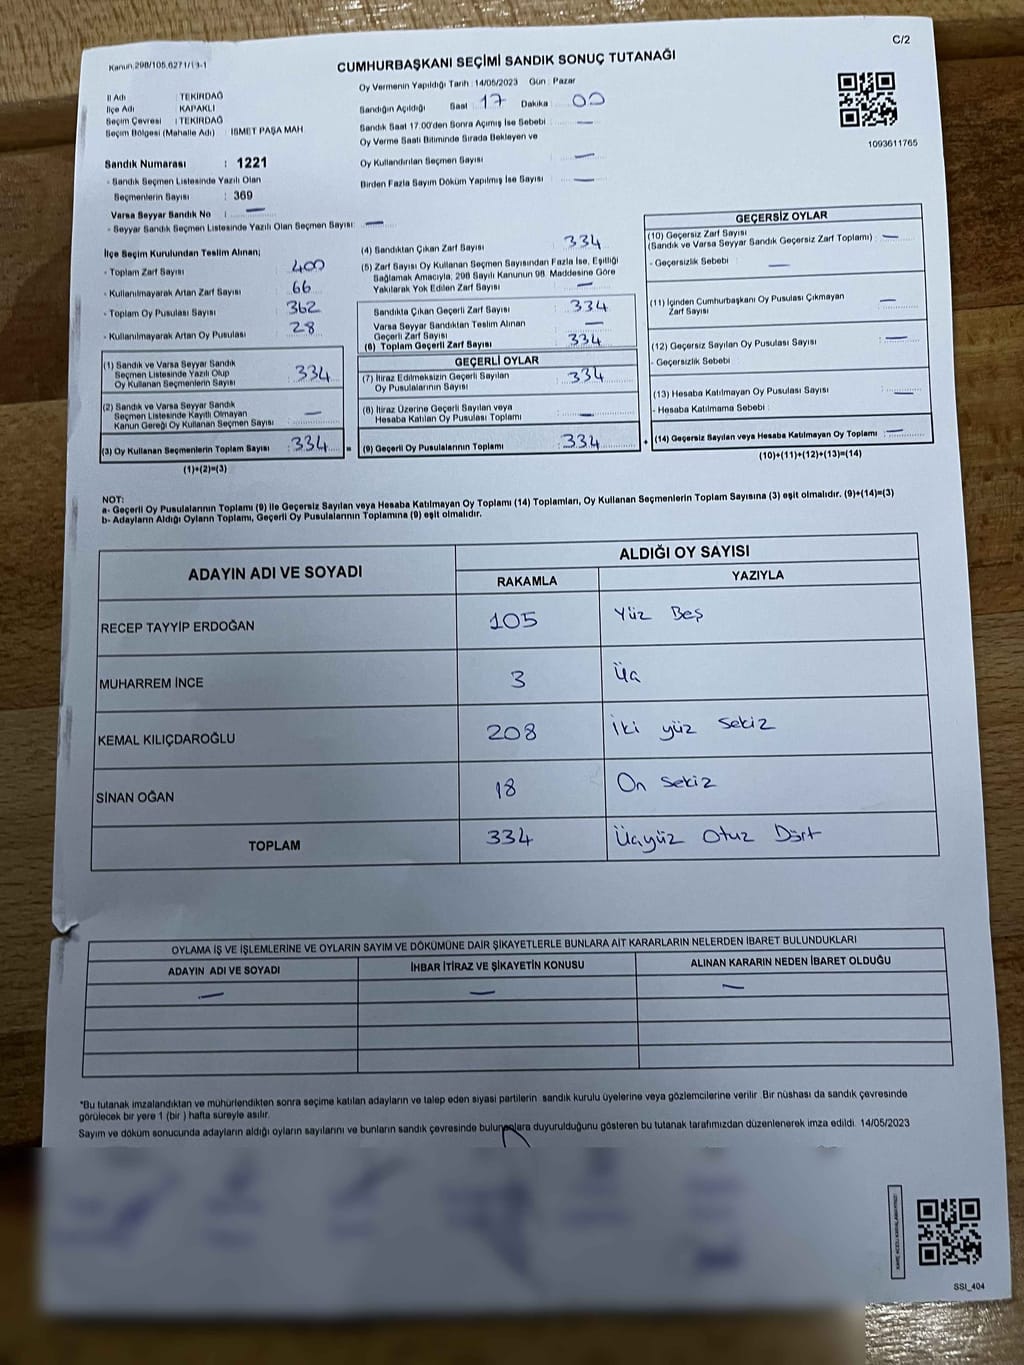 C/2
Kanun:298/105.6271/13-1
CUMHURBAŞKANI SEÇİMİ SANDIK SONUÇ TUTANAĞI
Oy Vermenin Yapıldığı Tarih : 14/05/2023 Gün : Pazar
İl Adı : TEKİRDAĞ
İlçe Adı : KAPAKLI
Seçim Çevresi : TEKİRDAĞ
Seçim Bölgesi (Mahalle Adı) : İSMET PAŞA MAH.
Sandığın Açıldığı Saat 17 Dakika : 00
Sandık Saat 17.00'den Sonra Açımış İse Sebebi : —
Oy Verme Saati Bitiminde Sırada Bekleyen ve
Oy Kullandırılan Seçmen Sayısı —
Birden Fazla Sayım Döküm Yapılmış İse Sayısı —
1093611765
Sandık Numarası : 1221
- Sandık Seçmen Listesinde Yazılı Olan
Seçmenlerin Sayısı : 369
Varsa Seyyar Sandık No : —
- Seyyar Sandık Seçmen Listesinde Yazılı Olan Seçmen Sayısı: —
İlçe Seçim Kurulundan Teslim Alınan;
- Toplam Zarf Sayısı : 400
- Kullanılmayarak Artan Zarf Sayısı : 66
- Toplam Oy Pusulası Sayısı : 362
- Kullanılmayarak Artan Oy Pusulası : 28
(1) Sandık ve Varsa Seyyar Sandık
Seçmen Listesinde Yazılı Olup
Oy Kullanan Seçmenlerin Sayısı : 334
(2) Sandık ve Varsa Seyyar Sandık
Seçmen Listesinde Kayıtlı Olmayan
Kanun Gereği Oy Kullanan Seçmen Sayısı : —
(3) Oy Kullanan Seçmenlerin Toplam Sayısı : 334 =
(1)+(2)=(3)
(4) Sandıktan Çıkan Zarf Sayısı : 334
(5) Zarf Sayısı Oy Kullanan Seçmen Sayısından Fazla İse, Eşitliği
Sağlamak Amacıyla, 298 Sayılı Kanunun 98. Maddesine Göre
Yakılarak Yok Edilen Zarf Sayısı : —
Sandıkta Çıkan Geçerli Zarf Sayısı : 334
Varsa Seyyar Sandıktan Teslim Alınan
Geçerli Zarf Sayısı : —
(6) Toplam Geçerli Zarf Sayısı : 334
GEÇERLİ OYLAR
(7) İtiraz Edilmeksizin Geçerli Sayılan
Oy Pusulalarının Sayısı : 334
(8) İtiraz Üzerine Geçerli Sayılan veya
Hesaba Katılan Oy Pusulası Toplamı : —
(9) Geçerli Oy Pusulalarının Toplamı : 334 +
GEÇERSİZ OYLAR
(10) Geçersiz Zarf Sayısı
(Sandık ve Varsa Seyyar Sandık Geçersiz Zarf Toplamı) : —
- Geçersizlik Sebebi : —
(11) İçinden Cumhurbaşkanı Oy Pusulası Çıkmayan
Zarf Sayısı : —
(12) Geçersiz Sayılan Oy Pusulası Sayısı : —
- Geçersizlik Sebebi :
(13) Hesaba Katılmayan Oy Pusulası Sayısı : —
- Hesaba Katılmama Sebebi :
(14) Geçersiz Sayılan veya Hesaba Katılmayan Oy Toplamı : —
(10)+(11)+(12)+(13)=(14)
NOT:
a- Geçerli Oy Pusulalarının Toplamı (9) ile Geçersiz Sayılan veya Hesaba Katılmayan Oy Toplamı (14) Toplamları, Oy Kullanan Seçmenlerin Toplam Sayısına (3) eşit olmalıdır. (9)+(14)=(3)
b- Adayların Aldığı Oyların Toplamı, Geçerli Oy Pusulalarının Toplamına (9) eşit olmalıdır.
ADAYIN ADI VE SOYADI ALDIĞI OY SAYISI
RAKAMLA YAZIYLA
RECEP TAYYİP ERDOĞAN 105 Yüz Beş
MUHARREM İNCE 3 Üç
KEMAL KILIÇDAROĞLU 208 İki yüz sekiz
SİNAN OĞAN 18 On sekiz
TOPLAM 334 Üçyüz Otuz Dört
OYLAMA İŞ VE İŞLEMLERİNE VE OYLARIN SAYIM VE DÖKÜMÜNE DAİR ŞİKAYETLERLE BUNLARA AİT KARARLARIN NELERDEN İBARET BULUNDUKLARI
ADAYIN ADI VE SOYADI İHBAR İTİRAZ VE ŞİKAYETİN KONUSU ALINAN KARARIN NEDEN İBARET OLDUĞU
— — —
*Bu tutanak imzalandıktan ve mühürlendikten sonra seçime katılan adayların ve talep eden siyasi partilerin sandık kurulu üyelerine veya gözlemcilerine verilir. Bir nüshası da sandık çevresinde
görülecek bir yere 1 (bir ) hafta süreyle asılır.
Sayım ve döküm sonucunda adayların aldığı oyların sayılarını ve bunların sandık çevresinde bulunanlara duyurulduğunu gösteren bu tutanak tarafımızdan düzenlenerek imza edildi. 14/05/2023
SSI_404